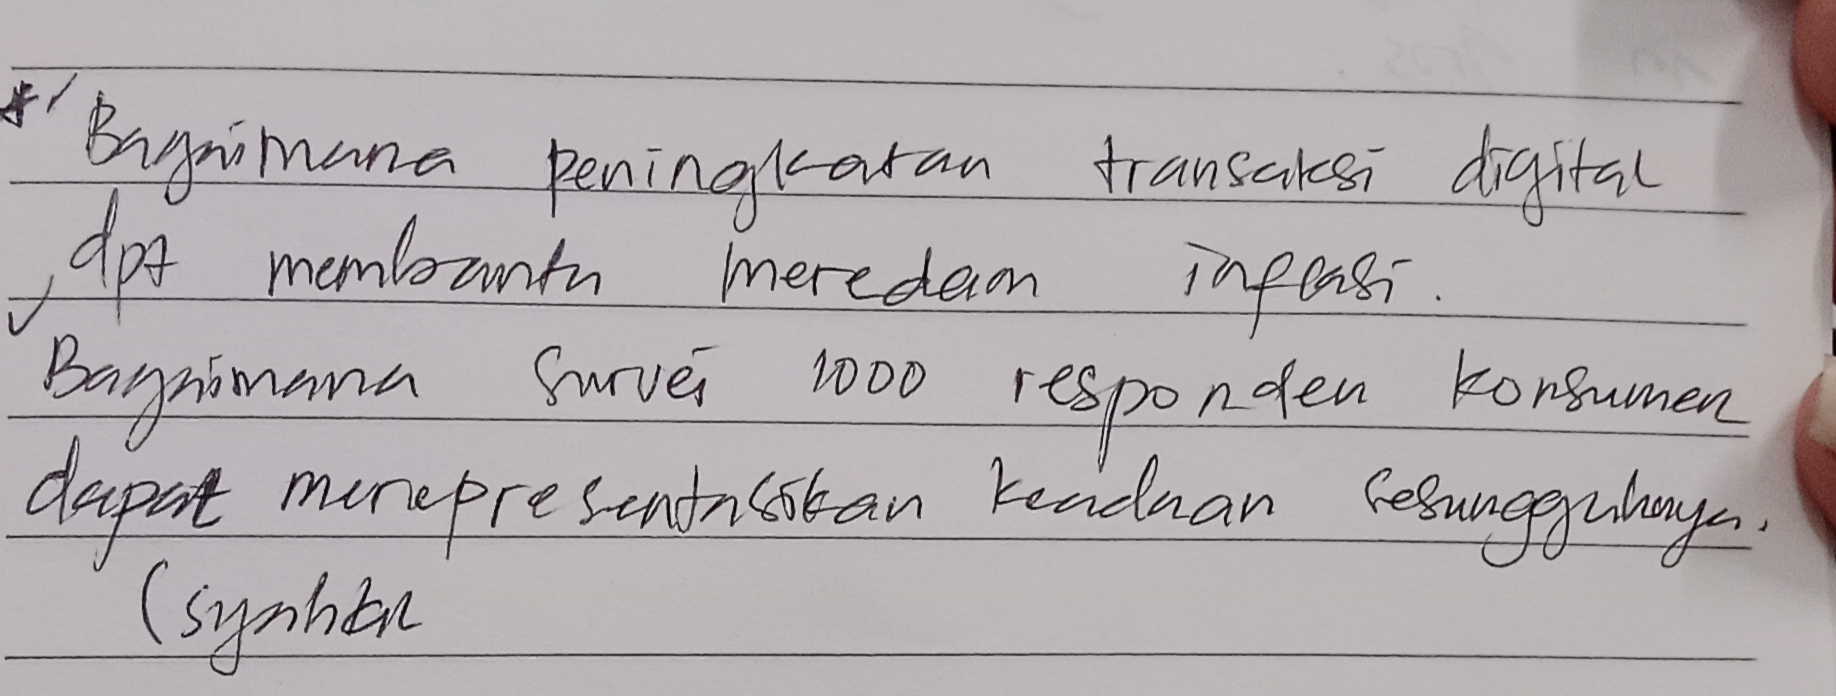 * Bagaimana peningkatan transaksi digital
dpt membantu meredam inflasi.
Bagaimana survei 1000 responden konsumen
dapat merepresentasikan keadaan sesungguhnya.